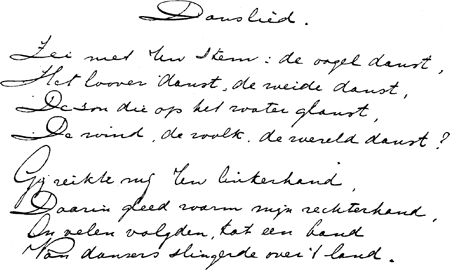 Danslied.
Zei niet Uw Stem: de vogel danst,
Het loover danst, de weide danst,
De zon die op het water glanst,
De wind, de wolk, de wereld danst?
Gij reikte mij Uw linkerhand,
Daarin gleed warm mijn rechterhand,
En velen volgden, tot een band
Van dansers slingerde over 't land.